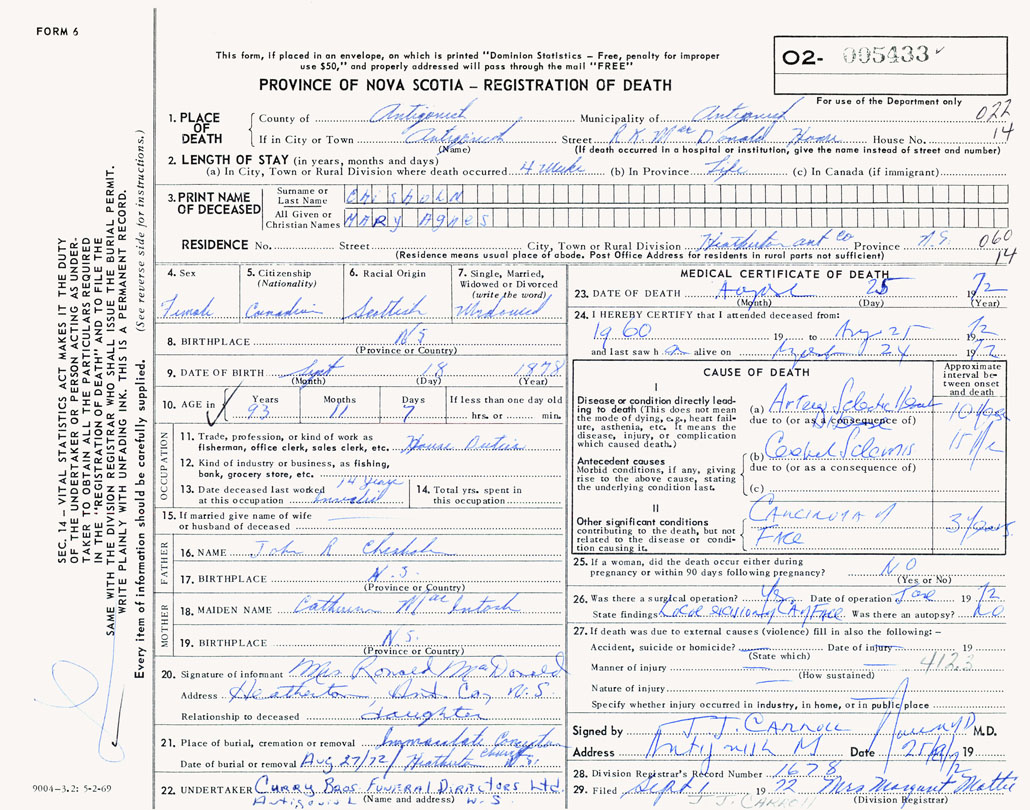 FORM 6
This form, if placed in an envelope, on which is printed "Dominion Statistics – Free, penalty for improper
use $50," and properly addressed will pass through the mail "FREE"
02- 005433
PROVINCE OF NOVA SCOTIA – REGISTRATION OF DEATH
For use of the Department only
1. PLACE OF DEATH
County of Antigonish Municipality of Antigonish 022
If in City or Town Antigonish Street R.K. Mac Donald House No. 14
(Name) (If death occurred in a hospital or institution, give the name instead of street and number)
2. LENGTH OF STAY (in years, months and days)
(a) In City, Town or Rural Division where death occurred 4 Weeks (b) In Province Life (c) In Canada (if immigrant)
3. PRINT NAME OF DECEASED
Surname or Last Name Chisholm
All Given or Christian Names MARY AgNes
RESIDENCE No. Street City, Town or Rural Division Heatherton ant Co Province N.S. 060
(Residence means usual place of abode. Post Office Address for residents in rural parts not sufficient) 14
4. Sex Female
5. Citizenship (Nationality) Canadian
6. Racial Origin Scottish
7. Single, Married, Widowed or Divorced (write the word) Widowed
8. BIRTHPLACE N.S
(Province or Country)
9. DATE OF BIRTH Sept 18 1878
(Month) (Day) (Year)
10. AGE in Years 93 Months 11 Days 7 If less than one day old hrs. or min.
OCCUPATION
11. Trade, profession, or kind of work as
fisherman, office clerk, sales clerk, etc. House Duties
12. Kind of industry or business, as fishing,
bank, grocery store, etc.
13. Date deceased last worked at this occupation 14 years
14. Total yrs. spent in this occupation
15. If married give name of wife
or husband of deceased
FATHER
16. NAME John R Chisholm
17. BIRTHPLACE N.S.
(Province or Country)
MOTHER
18. MAIDEN NAME Catherine Mac Intosh
19. BIRTHPLACE N.S.
(Province or Country)
20. Signature of informant Mrs Ronald MacDonald
Address Heatherton, Ant. Co, N.S.
Relationship to deceased daughter
21. Place of burial, cremation or removal Immaculate Conception church
Date of burial or removal Aug 27/72 / Heatherton N.S.
22. UNDERTAKER Curry Bros Funeral Directors Ltd.
Antigonish N.S.
(Name and address)
MEDICAL CERTIFICATE OF DEATH
23. DATE OF DEATH August 25 1972
(Month) (Day) (Year)
24. I HEREBY CERTIFY that I attended deceased from:
1960 19 to Aug 25 1972
and last saw h alive on 24 1972
CAUSE OF DEATH
Approximate interval between onset and death
I
Disease or condition directly leading to death (This does not mean the mode of dying, e.g., heart failure, asthenia, etc. It means the disease, injury, or complication which caused death.)
(a) Heart Disease 10 Years
due to (or as a consequence of)
Antecedent causes
Morbid conditions, if any, giving rise to the above cause, stating the underlying condition last.
(b) 15
due to (or as a consequence of)
(c)
II
Other significant conditions
contributing to the death, but not related to the disease or condition causing it.
CARCINOMA of
FACE 3 Years.
25. If a woman, did the death occur either during
pregnancy or within 90 days following pregnancy? NO
(Yes or No)
26. Was there a surgical operation? Yes Date of operation 1972
State findings Local excision of CA Face Was there an autopsy? No
27. If death was due to external causes (violence) fill in also the following: –
Accident, suicide or homicide? Date of injury 19
(State which)
Manner of injury 412.3
(How sustained)
Nature of injury
Specify whether injury occurred in industry, in home, or in public place
Signed by J. J. CARROLL M.D.
Address Antigonish Date 19
28. Division Registrar's Record Number 1678
29. Filed Sept 1 1972 Mrs Margaret Mattie
J J CARROLL (Division Registrar)
SEC. 14 – VITAL STATISTICS ACT MAKES IT THE DUTY
OF THE UNDERTAKER OR PERSON ACTING AS UNDER-
TAKER TO OBTAIN ALL THE PARTICULARS REQUIRED
IN THE "REGISTRATION OF DEATH" AND TO FILE THE
SAME WITH THE DIVISION REGISTRAR WHO SHALL ISSUE THE BURIAL PERMIT.
WRITE PLAINLY WITH UNFADING INK. THIS IS A PERMANENT RECORD.
Every item of information should be carefully supplied. (See reverse side for instructions.)
9004–3.2: 5-2-69